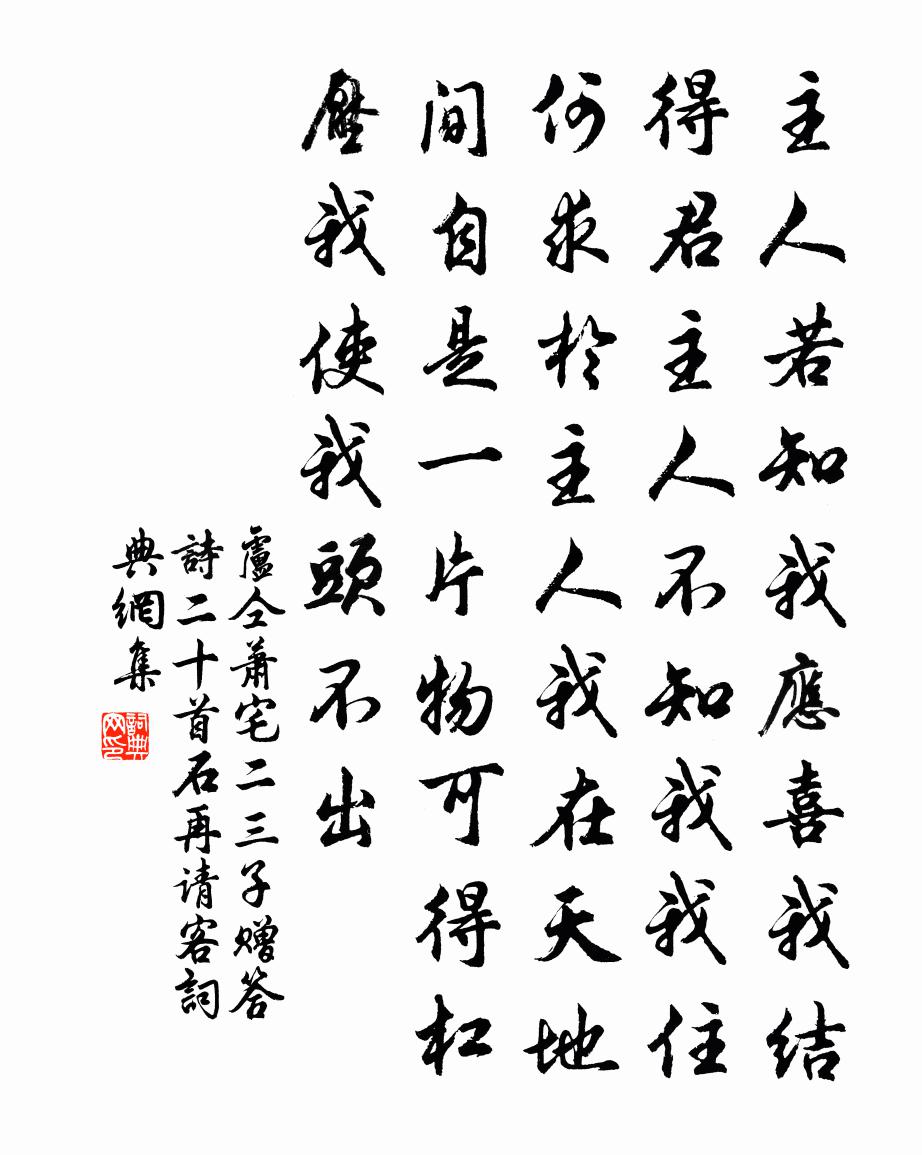 主人若知我應喜我结
得君主人不知我我住
何求於主人我在天地
间自是一片物可得杠
壓我使我頭不出
盧仝蕭宅二三子赠答
詩二十首石再请客詞
典網集
詞典
网印